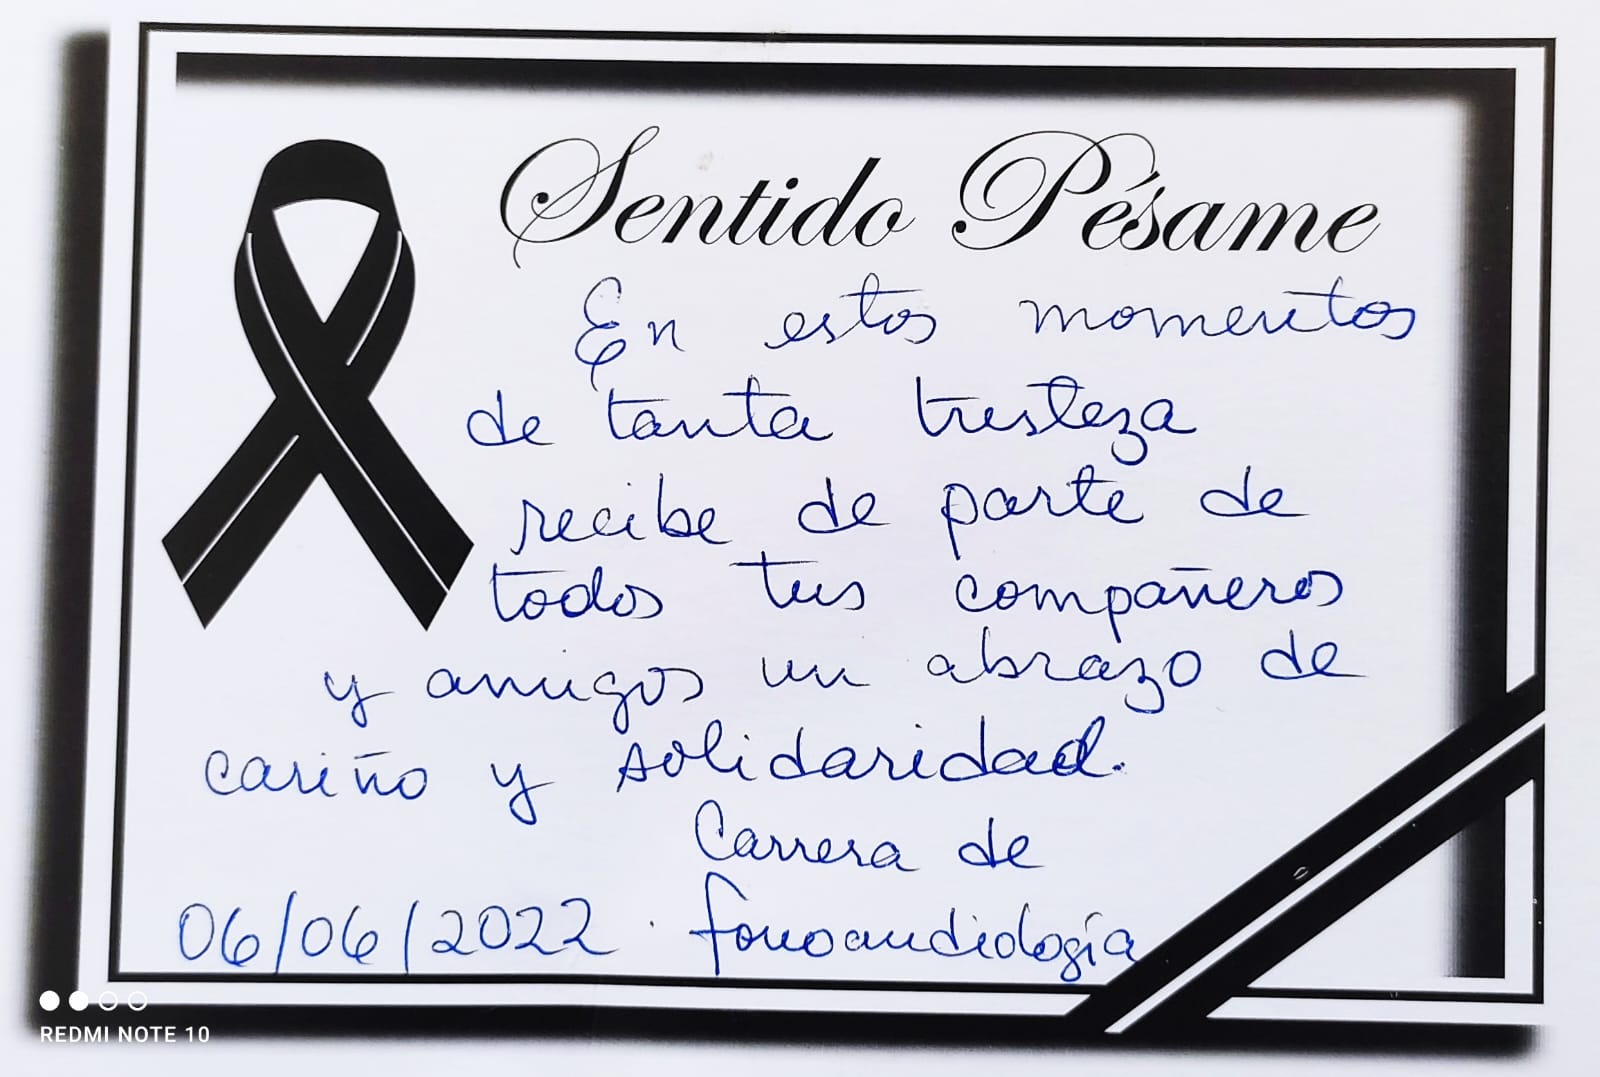 Sentido Pésame
En estos momentos
de tanta tristeza
recibe de parte de
todos tus compañeros
y amigos un abrazo de
cariño y solidaridad.
Carrera de
06/06/2022. fonoaudiología
REDMI NOTE 10